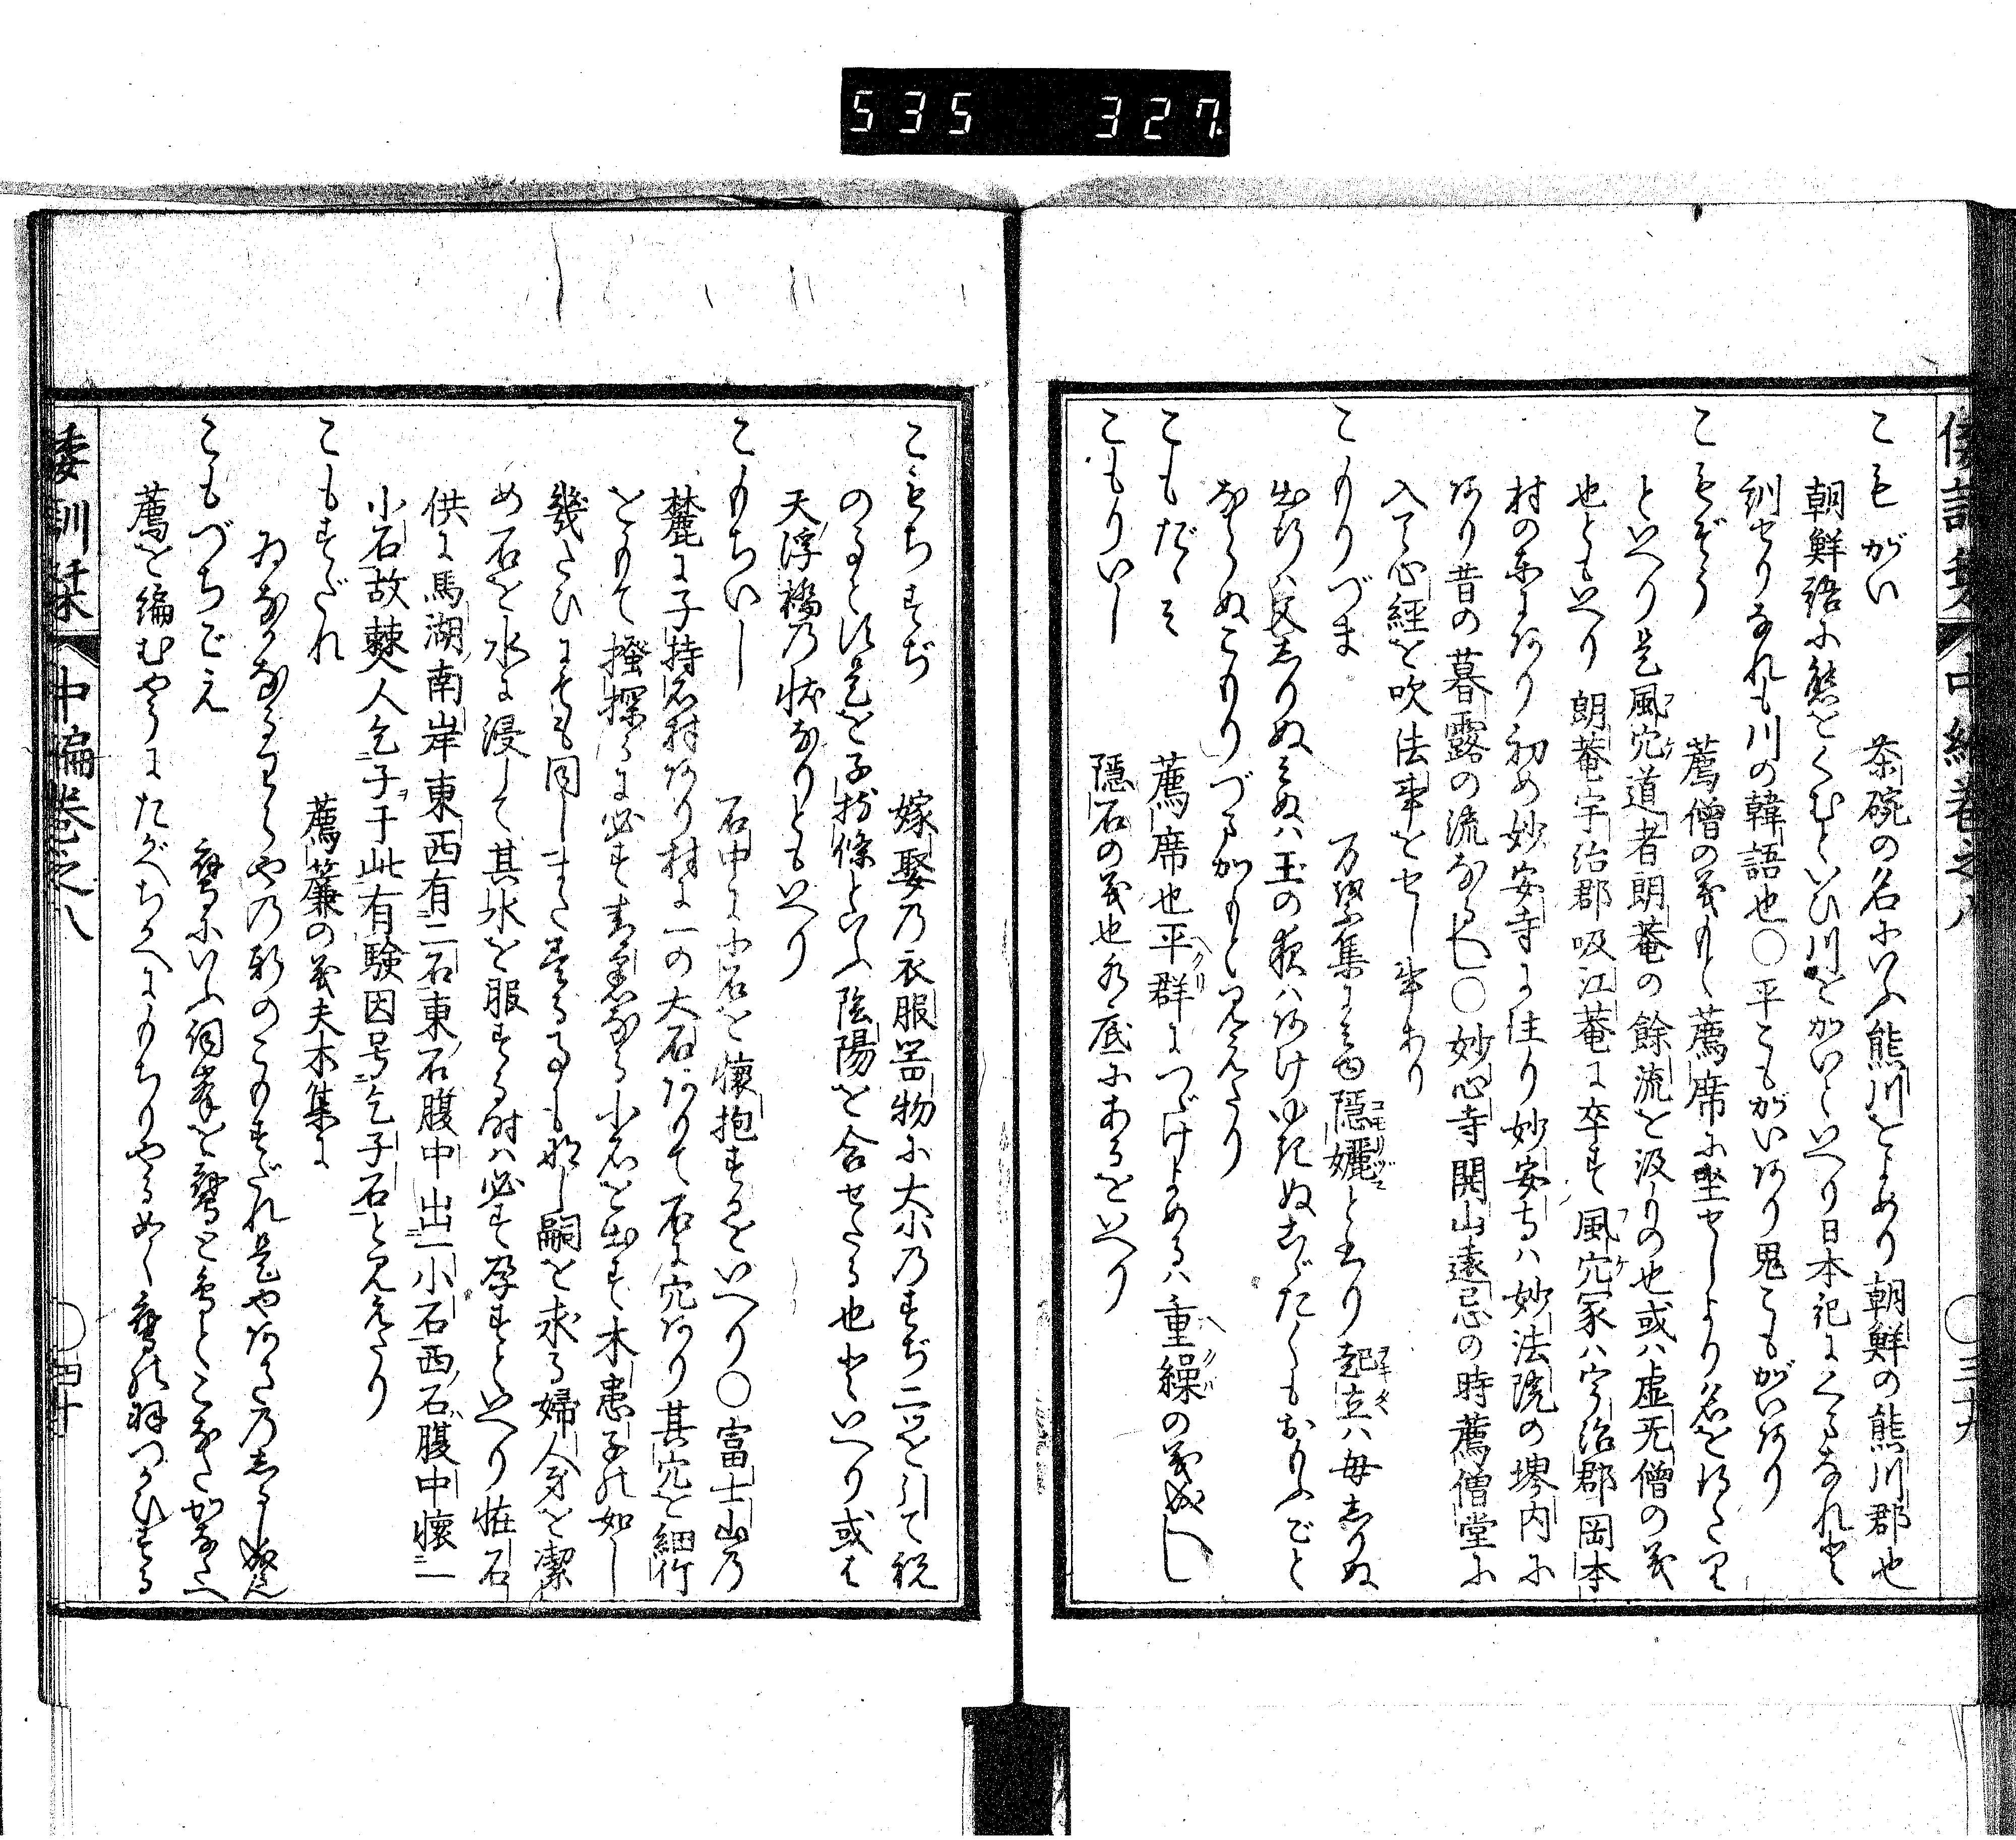 535 327
倭訓栞 中編巻之八 ○三十九
こもがい 茶碗の名にいふ熊川をよめり朝鮮の熊川郡也
朝鮮語に熊をくむといひ川をかいといへり日本紀にくまなれと
訓せりなれも川の韓語也○平こもがいあり鬼こもがいあり
こもぞう 薦僧の義もと薦席に坐せしより名を得たり
といへり是風穴道者朗菴の餘流を汲もの也或ハ虚无僧の義
也ともいへり 朗菴宇治郡吸江菴に卒す風穴冢ハ宇治郡岡本
村の东にあり初め妙安寺に住り妙安寺ハ妙法院の堺内に
あり昔の暮露の流なるへし○妙心寺開山遠忌の時薦僧堂に
入て心經を吹法事をせし事あり
こもりづま 万葉集にみゆ隠孋と書り起立ハ母しりぬ
出行ハ父しりぬ
ならぬこもりづまかもと見えたり
こもだゝみ 薦席也平群につゞけよめるハ重繰の義成へし
こもりいし 隠石の義也水底にあるをいへり
こもちすぢ 嫁娶の衣服器物に大小のすぢ二を引て祝
のるとす是を子持條といふ陰陽を合せたる也といへり或は
天浮橋の状なりともいへり
こもちいし 石中に小石を懐抱するをいへり○富士山の
麓に子持石村あり村に一の大石ありて石に穴あり其穴を細竹
をもて掻探るに必す青黒なる小石を出す木患子の如し
幾たひにても同しまた盡る事も那し嗣を求る婦人身を潔
め石を水に浸して其水を服する時ハ必す孕すといへり恠石
供に馬湖南岸東西有二石東石腹中出一小石西石腹中懐一
小石故僰人乞子于此有験因号乞子石と見えたり
こもすだれ 薦簾の義夫木集に
ゐなかなるわらやの新のこもすだれ是やあしたのしるし成
こもづちごえ 鶯にいふ詞
薦を編むやうにたがへちがへにもちりやるめく鶯の
倭訓栞 中編巻之八 ○四十